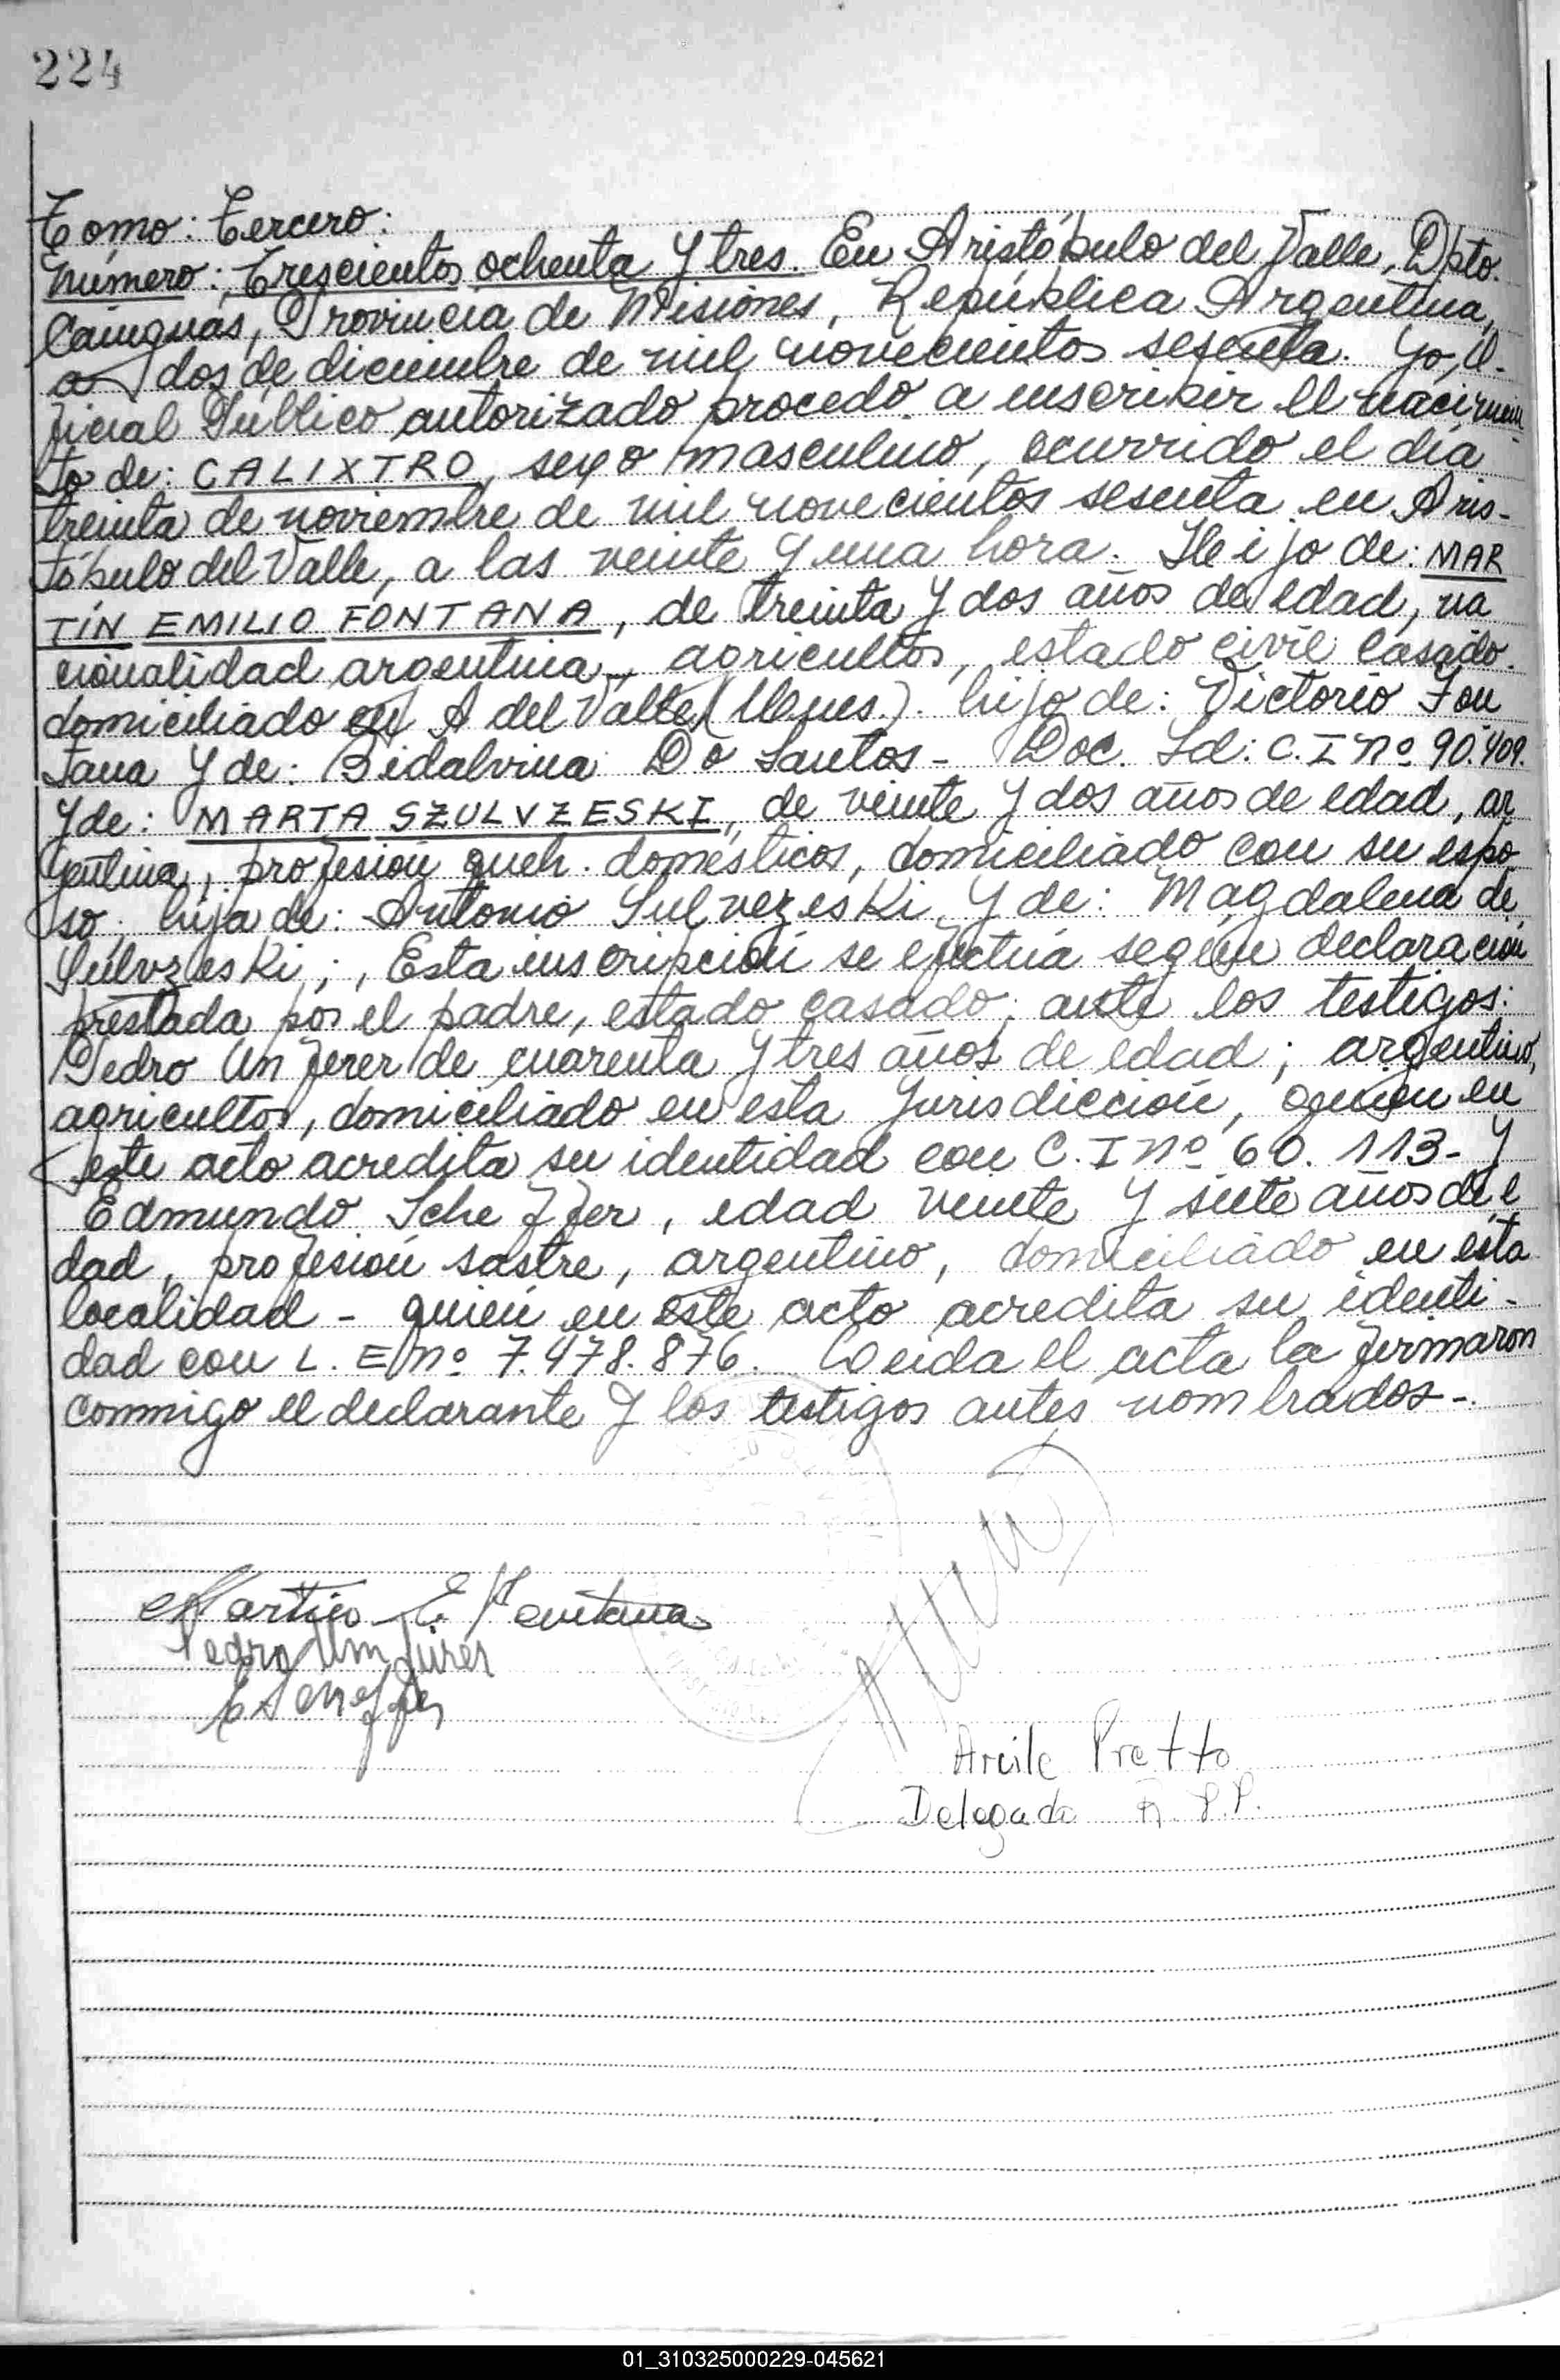 224
Tomo: Tercero:
Número: Trescientos ochenta y tres. En Aristóbulo del Valle, Dpto.
Cainguás, Provincia de Misiones, República Argentina,
a dos de diciembre de mil novecientos sesenta. Yo, O-
ficial Público autorizado procedo a inscribir el nacimien
to de: CALIXTRO, sexo masculino, ocurrido el día
treinta de noviembre de mil novecientos sesenta en Aris-
tóbulo del Valle, a las veinte y una hora. Heijo de: MAR
TÍN EMILIO FONTANA, de treinta y dos años de edad, na
cionalidad argentina, agricultor, estado civil casado.
domiciliado en A del Valle hijo de: Victorio Fon
tana y de: Bidalvina Do Santos - Doc. Id: C. I nº 90.409.
y de: MARTA SZULVZESKI, de veinte y dos años de edad, ar
gentina, profesión queh. domésticos, domiciliado con su espo
so, hija de: Antonio Sulvezeski, y de: Magdalena de
Sulvzeski; , Esta inscripción se efectúa según declaración
prestada por el padre, estado casado; ante los testigos:
Pedro Unferer de cuarenta y tres años de edad; argentino,
agricultor, domiciliado en esta Jurisdicción, quien en
este acto acredita su identidad con C. I nº 60.113- y
Edmundo Scheffer, edad veinte y siete años de e
dad, profesión sastre, argentino, domiciliado en esta
localidad - quien en este acto acredita su identi-
dad con L. E nº 7.478.876. Leida el acta la firmaron
conmigo el declarante y los testigos antes nombrados-.
Martin E. Fontana
Pedro
E Scheffer
Arcile Pretto
Delegado R.P.P.
01_310325000229-045621